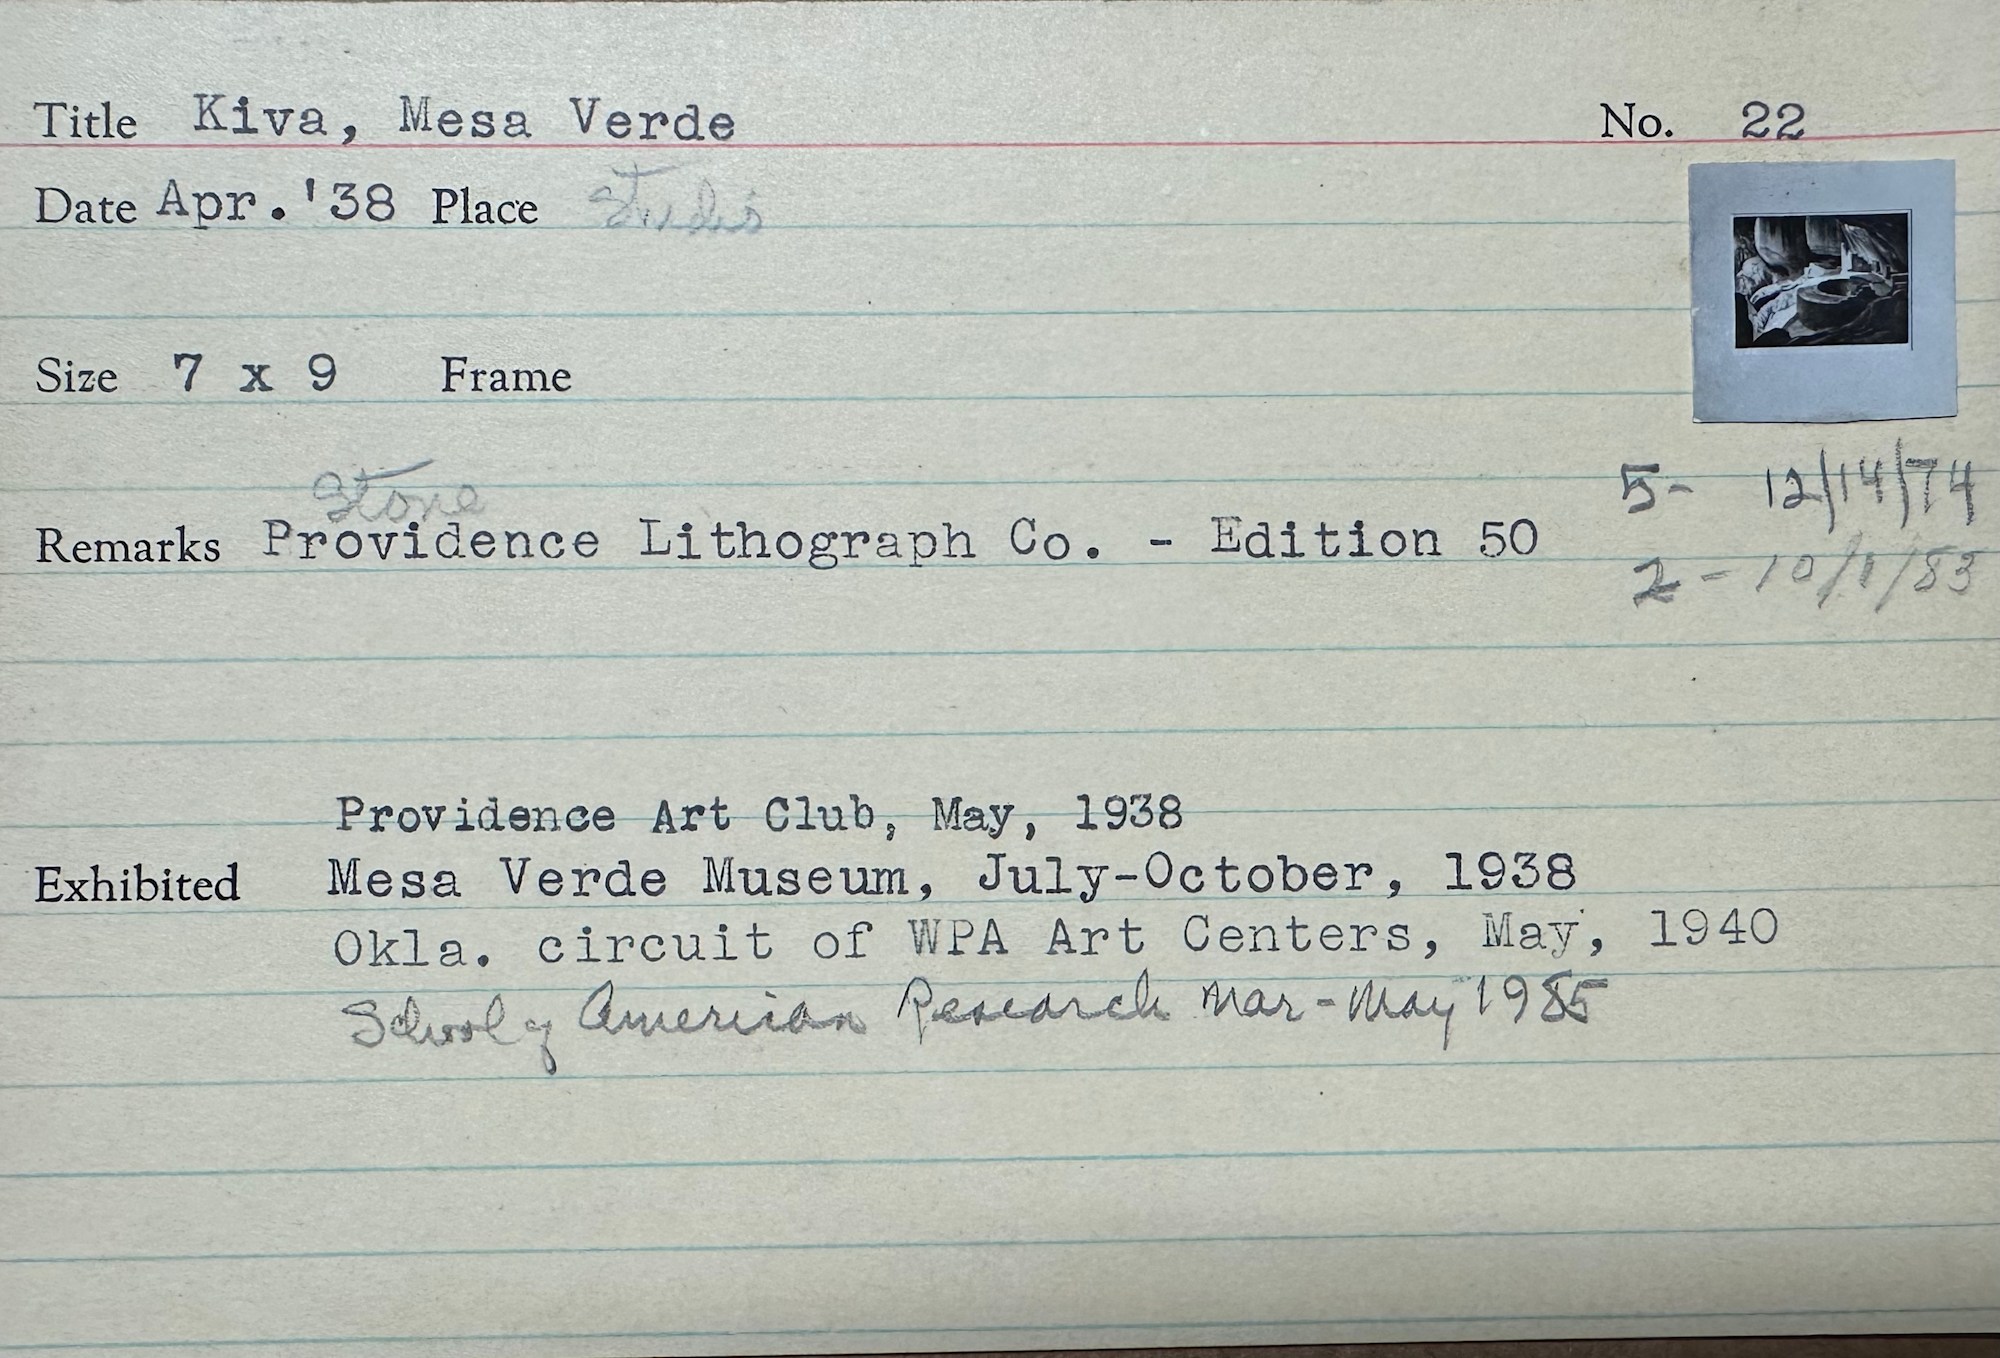 Title Kiva, Mesa Verde No. 22
Date Apr. '38 Place Studio
Size 7 x 9 Frame
Stone
5- 12/14/74
Remarks Providence Lithograph Co. - Edition 50
2 - 10/1/83
Providence Art Club, May, 1938
Exhibited Mesa Verde Museum, July-October, 1938
Okla. circuit of WPA Art Centers, May, 1940
School of American Research Mar - May 1985